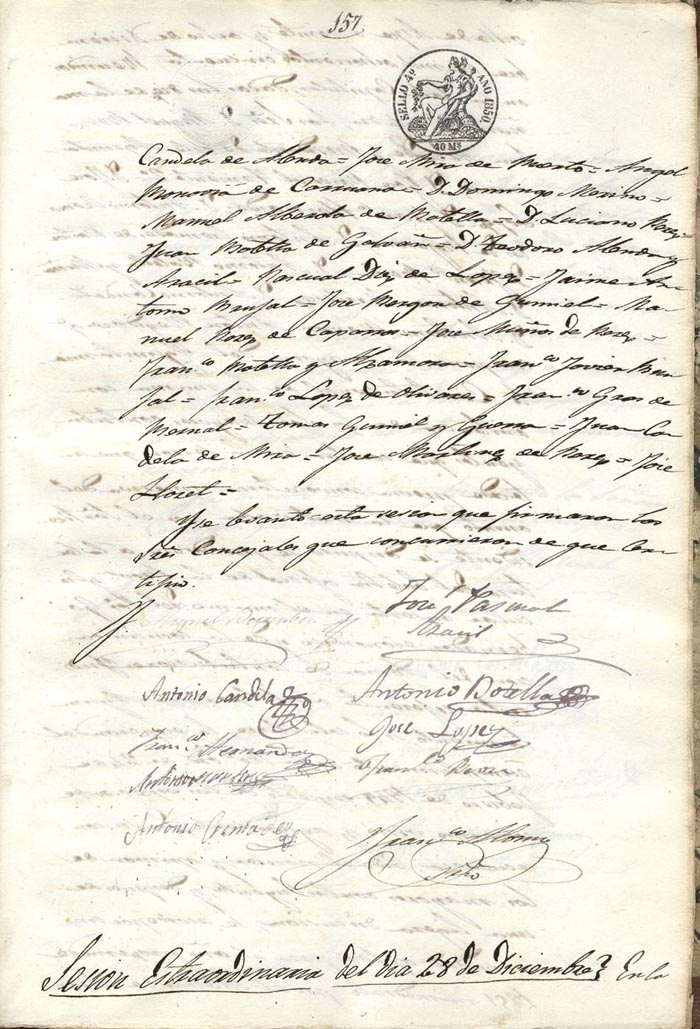 157
SELLO 4º AÑO 1850.
40 Ms
Candela de Menda = Jose Mira de Puerto = Angel
de Carisana = D. Domingo Merino =
Manuel Alberola de Botella = D. Luciano Perez
Juan Botella de Galvañ = D. Teodoro Alenda y
Aracil = Pascual Diez de Lopez = Jaime An
tonio Brufal = Jose de Gumiel = Ma
nuel Perez de Caparros = Jose Muños de Perez =
Franco Botella y Altamora = Franco Javier Bru
fal = Franco Lopez de Olivares = Franco Gras de
Bernal = Tomas Gumiel y Guerra = Juan Can
dela de Mira = Jose Martinez de Perez = Jose
Lloret =
Y se levanto esta sesion que firmaron los
Sres Concejales que concurrieron de que Cer
tifico.
José Pascual
Aracil
Miguel
Antonio Candela
Antonio Botella
Franco Hernandez
José Lopez
Antonio
Antonio
Franco
Srio
Sesion Estraordinaria del dia 28 de Diciembre En la